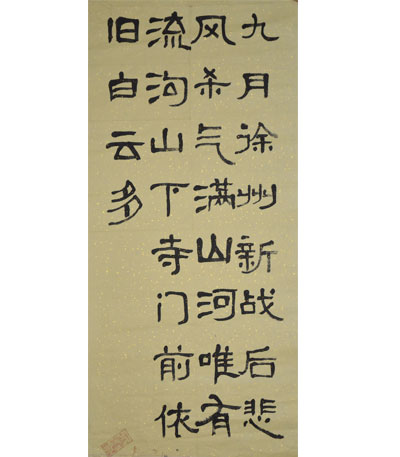 九月徐州新战后悲
风杀气满山河唯有
流沟山下寺门前依
旧白云多